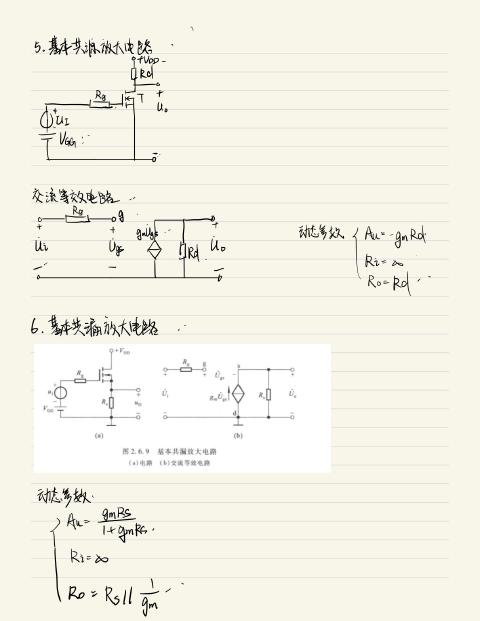 5. 基本共源放大电路
+VDD
Rd
Rg
T
+
Uo
+
UI
VGG
-
交流等效电路
Rg
g
+
U̇i
-
+
U̇gs
-
gmU̇gs
Rd
+
U̇o
-
动态参数
Au=-gmRd
Ri=∞
Ro=Rd
6. 基本共漏放大电路
+VDD
Rg
Rs
uI
VGG
+
uO
-
(a)
Rg
g
s
+
U̇i
-
U̇gs
gmU̇gs
Rs
d
+
U̇o
-
(b)
图 2.6.9 基本共漏放大电路
(a)电路 (b)交流等效电路
动态参数
Au= gmRs / 1+gmRs
Ri=∞
Ro=Rs// 1/gm